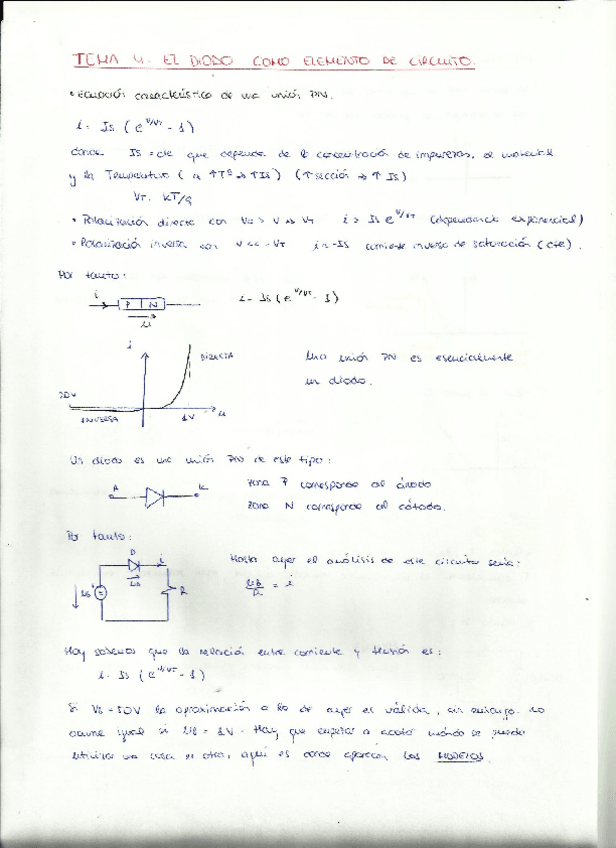 TEMA 4. EL DIODO COMO ELEMENTO DE CIRCUITO.
• Ecuación característica de una unión PN.
i = Is (e^V/VT - 1)
donde Is = cte que depende de la concentración de impurezas, el material
y la Temperatura (a ↑Tª ⇒ ↑Is) (↑sección ⇒ ↑ Is)
VT = KT/q
• Polarización directa con V >> VT i ≃ Is e^V/VT (dependencia exponencial)
• Polarización inversa con V << -VT i ≃ -Is corriente inversa de saturación (cte).
Por tanto:
i
P N
u
i = Is (e^V/VT - 1)
i
DIRECTA
INVERSA
1V
u
Una unión PN es esencialmente
un diodo.
Un diodo es una unión PN de este tipo:
A
K
zona P corresponde al ánodo
zona N corresponde al cátodo.
Por tanto:
D
i
R
Hasta ayer el análisis de este circuito sería:
= i
Hoy sabemos que la relación entre corriente y tensión es:
i = Is (e^V/VT - 1)
Si la aproximación a lo de ayer es válida, sin embargo no
ocurre igual si = 1V. Hay que empezar a acotar cuándo se puede
utilizar una cosa u otra, aquí es donde aparecen los MODELOS.